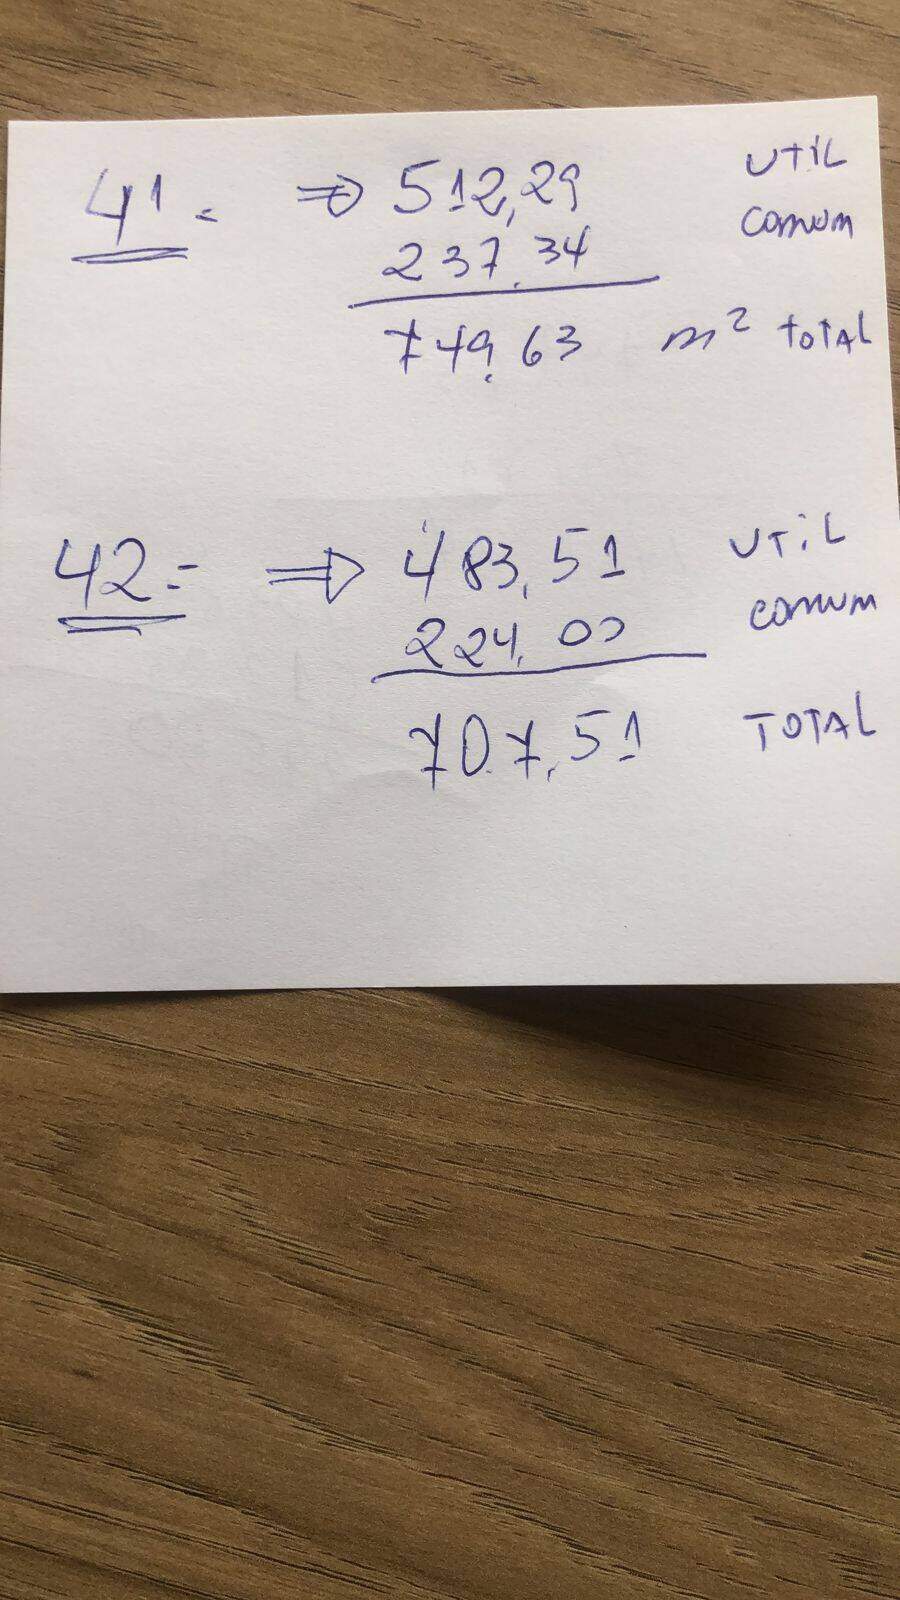 41 = ⇒ 512,29 UTiL
237.34 comum
749,63 m² TOTAL
42 = ⇒ 483,51 UTiL
224,00 comum
707,51 TOTAL